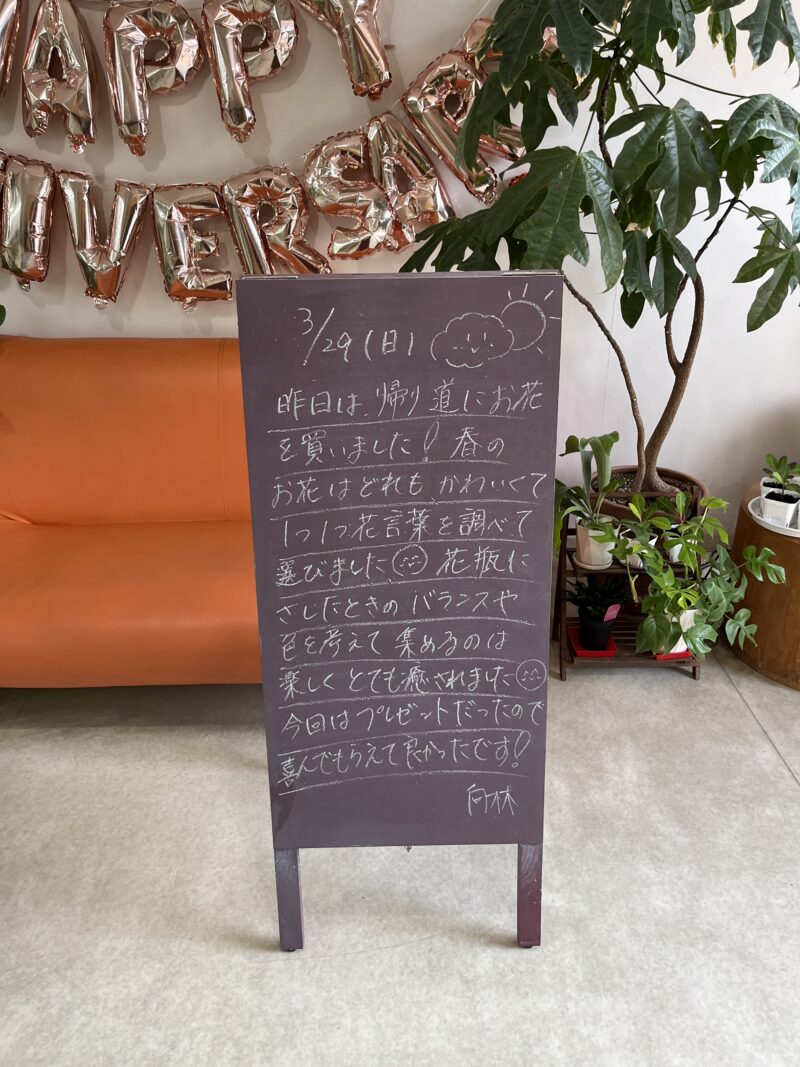 HAPPY
IVERSARY
3/29(日)
昨日は、帰り道にお花
を買いました!春の
お花はどれも、かわいくて
1つ1つ花言葉を調べて
選びました 花瓶に
さしたときの バランスや
色を考えて 集めるのは
楽しく とても癒されました
今回は プレゼントだったので
喜んでもらえて良かったです!
向林